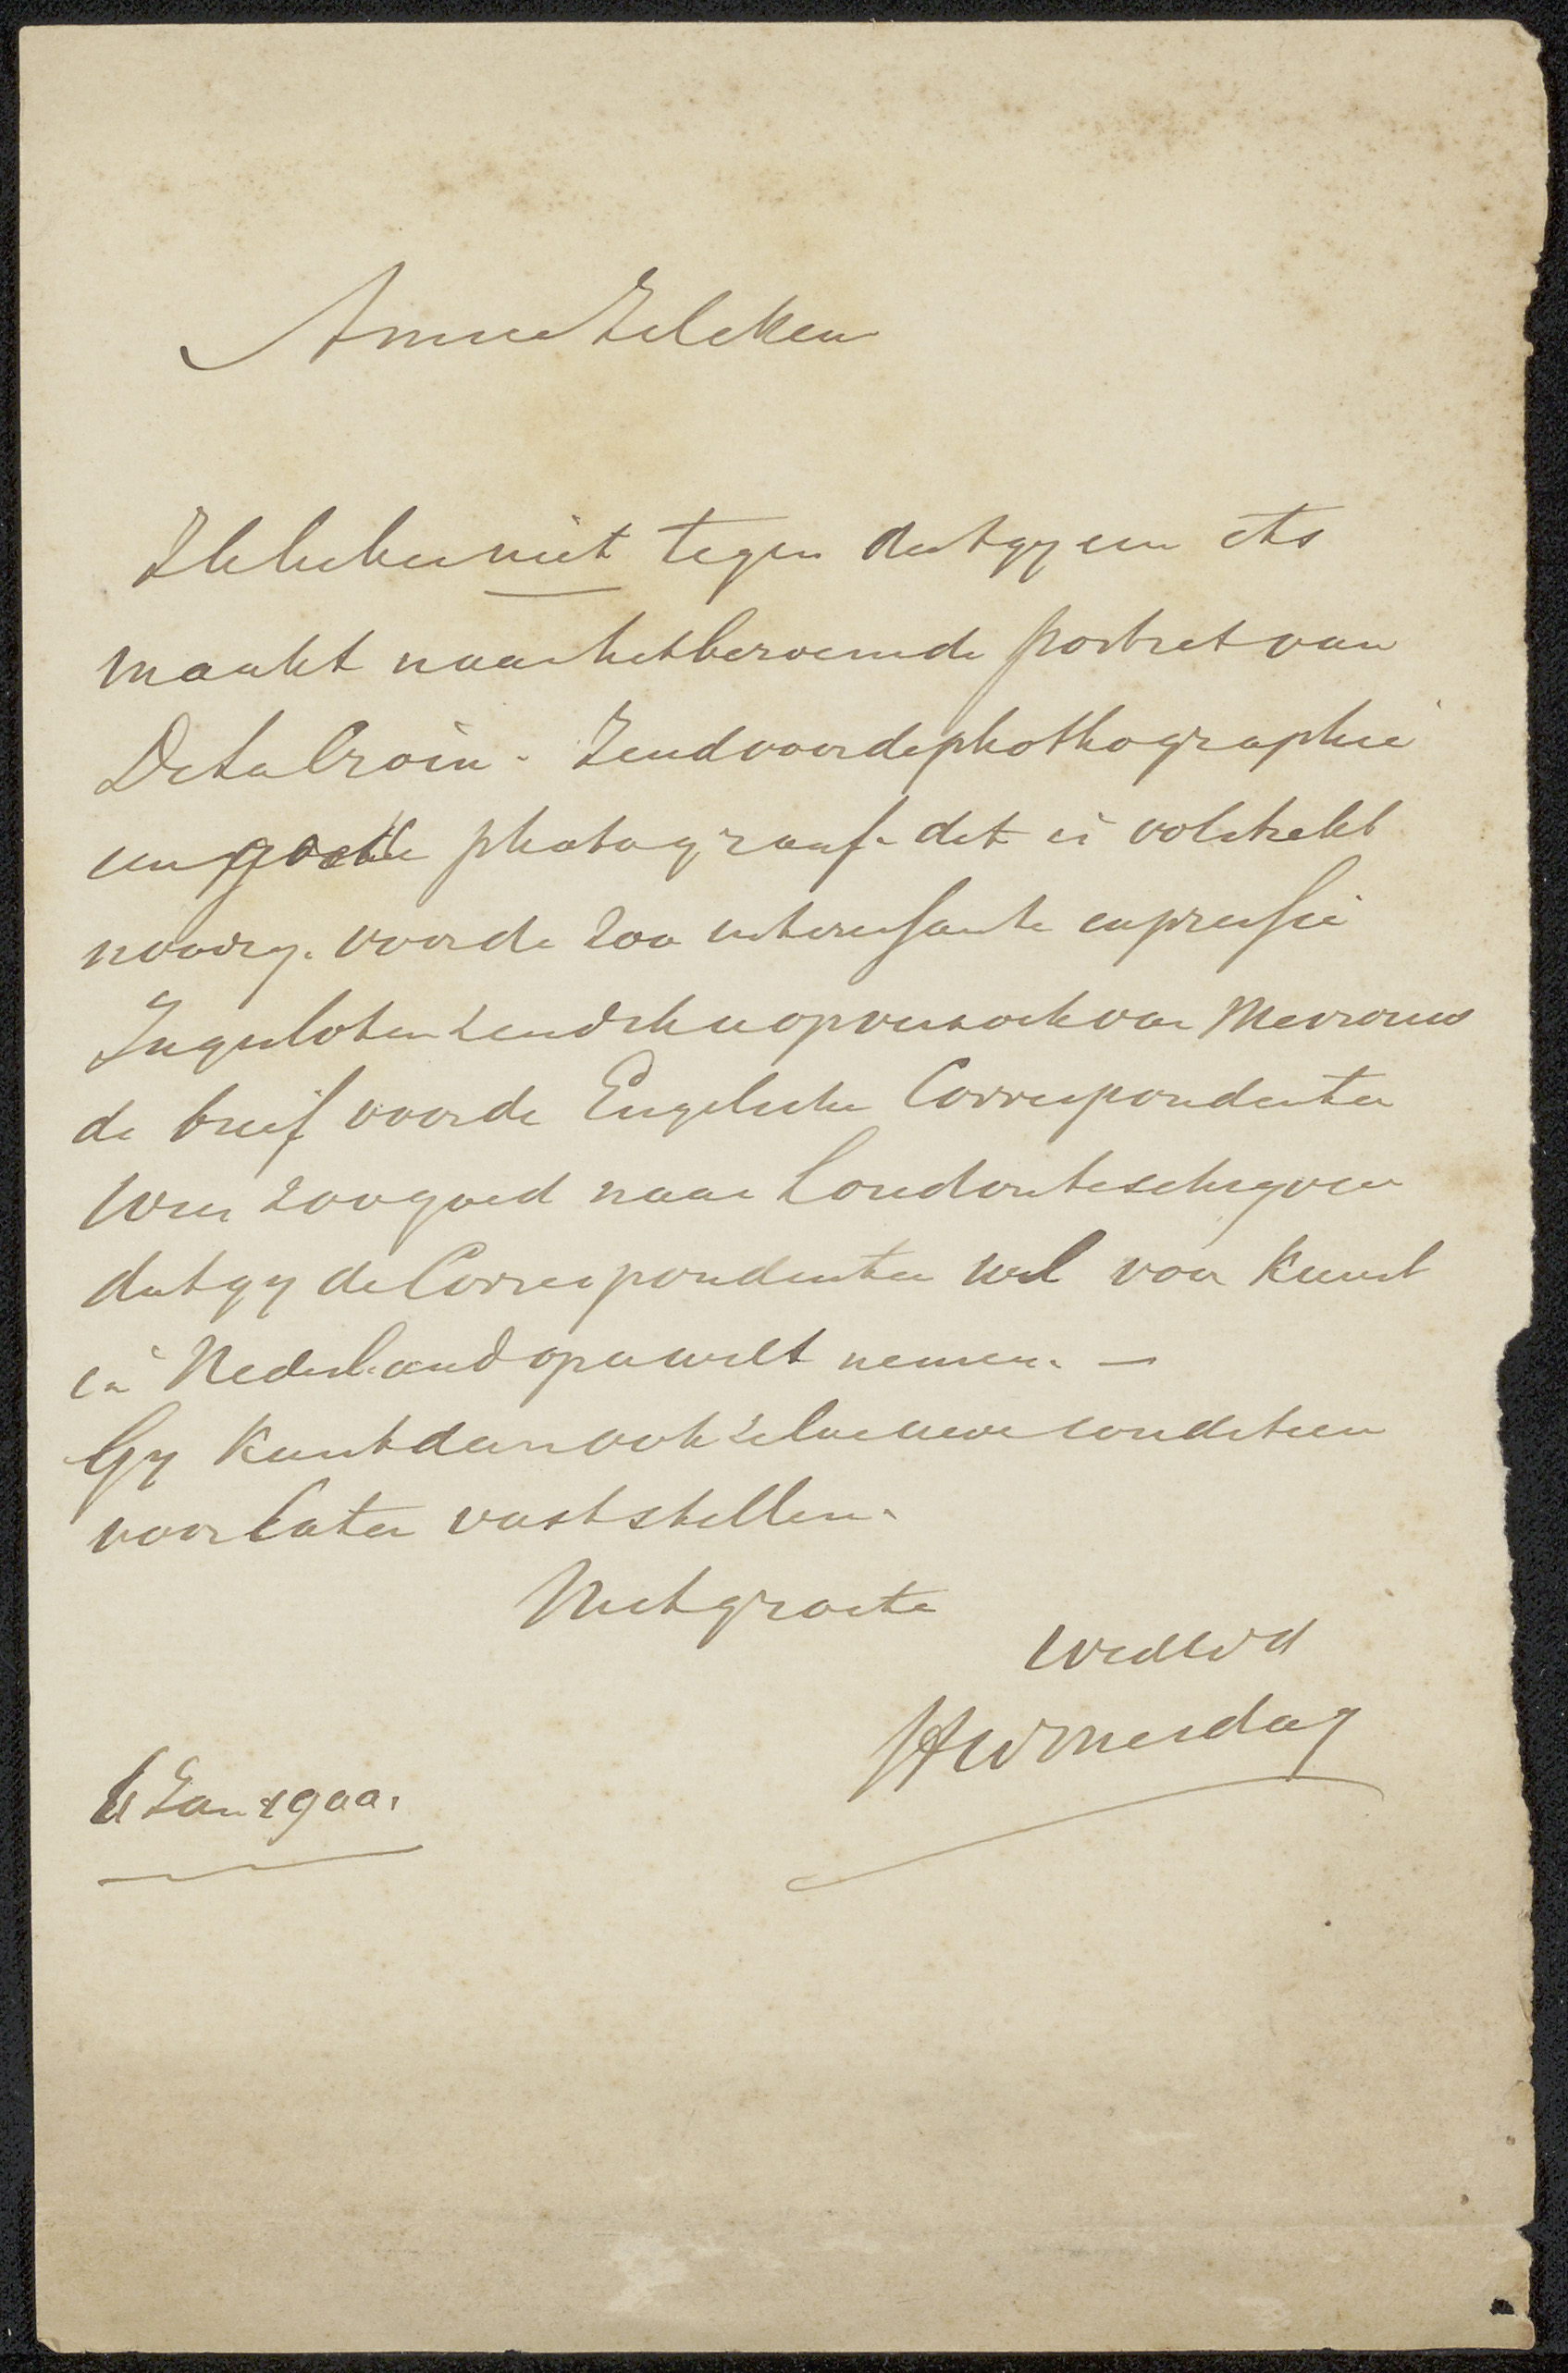 Amice Zilcken
Ik heb er niet tegen dat gy een ets
maakt naar het beroemde portret van
Delacroix. Zend voor de phothographie
een goede photograaf. dat is volstrekt
noodig. voor de zoo interessante expressie
Ingesloten zend ik u op verzoek van Mevrouw
de brief voor de Engelsche Correspondentie
Wees zoo goed naar London te schryven
dat gy de Correspondentie wel voor Kunst
in Nederland op u wilt nemen. —
Gy kunt dan ook zelve uwe conditien
voor later vaststellen.
Met groete
HWMesdag
Jan 1900.